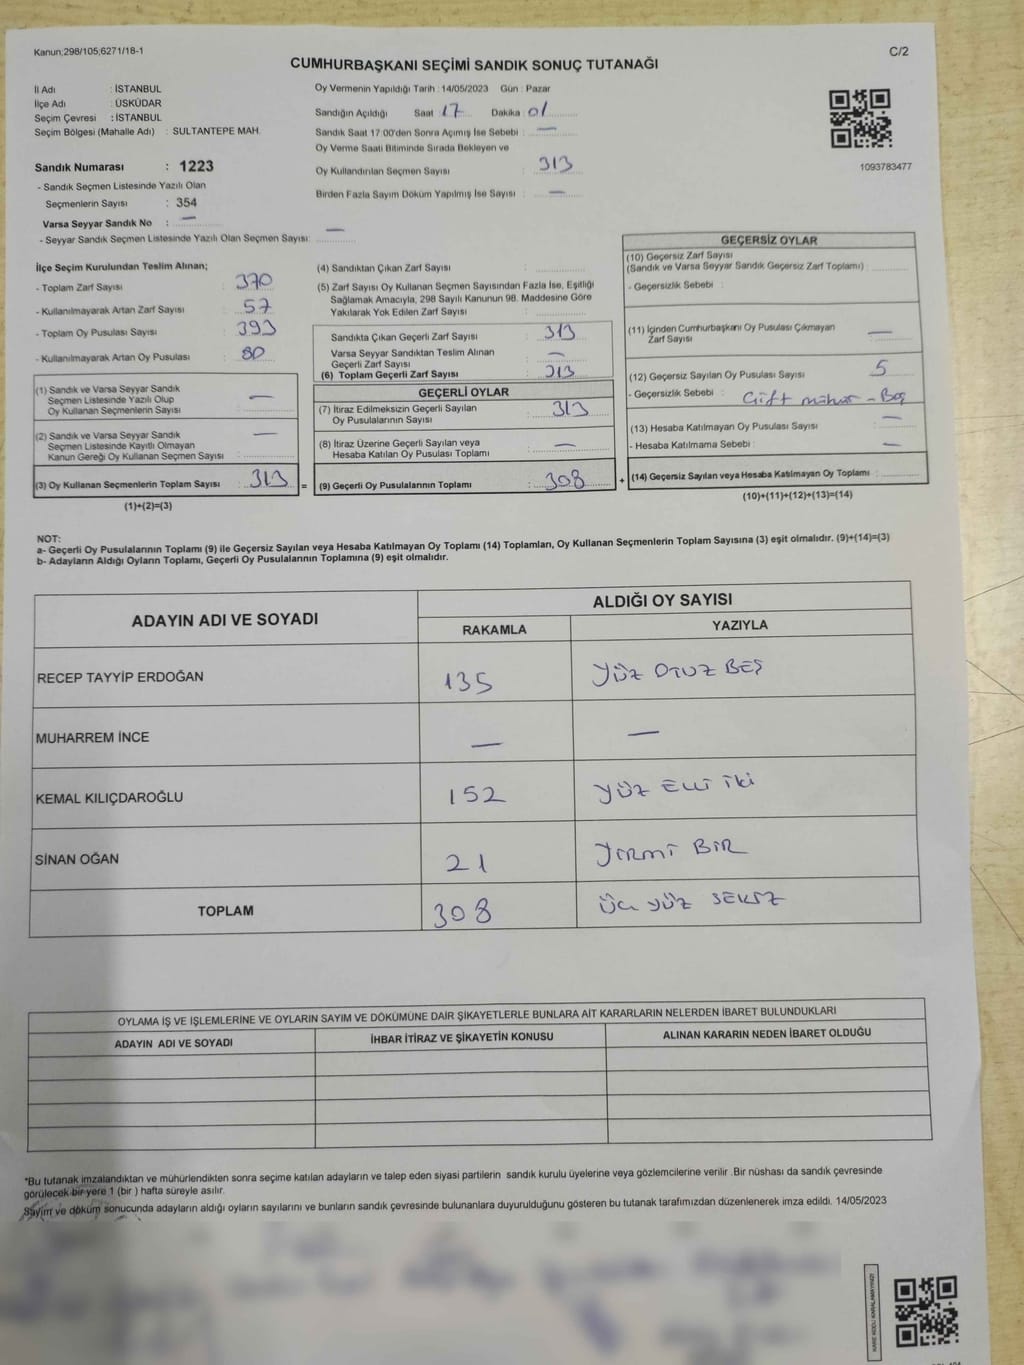 Kanun;298/105,6271/18-1
C/2
CUMHURBAŞKANI SEÇİMİ SANDIK SONUÇ TUTANAĞI
İl Adı : İSTANBUL
İlçe Adı : ÜSKÜDAR
Seçim Çevresi : İSTANBUL
Seçim Bölgesi (Mahalle Adı) : SULTANTEPE MAH.
Sandık Numarası : 1223
- Sandık Seçmen Listesinde Yazılı Olan
Seçmenlerin Sayısı : 354
Varsa Seyyar Sandık No : —
- Seyyar Sandık Seçmen Listesinde Yazılı Olan Seçmen Sayısı: —
Oy Vermenin Yapıldığı Tarih : 14/05/2023 Gün : Pazar
Sandığın Açıldığı Saat : 17 Dakika : 01
Sandık Saat 17:00'den Sonra Açımış İse Sebebi : —
Oy Verme Saati Bitiminde Sırada Bekleyen ve
Oy Kullandırılan Seçmen Sayısı : 313
Birden Fazla Sayım Döküm Yapılmış İse Sayısı : —
1093783477
İlçe Seçim Kurulundan Teslim Alınan;
- Toplam Zarf Sayısı : 370
- Kullanılmayarak Artan Zarf Sayısı : 57
- Toplam Oy Pusulası Sayısı : 393
- Kullanılmayarak Artan Oy Pusulası : 80
(1) Sandık ve Varsa Seyyar Sandık
Seçmen Listesinde Yazılı Olup
Oy Kullanan Seçmenlerin Sayısı : —
(2) Sandık ve Varsa Seyyar Sandık
Seçmen Listesinde Kayıtlı Olmayan
Kanun Gereği Oy Kullanan Seçmen Sayısı : —
(3) Oy Kullanan Seçmenlerin Toplam Sayısı : 313
(1)+(2)=(3)
(4) Sandıktan Çıkan Zarf Sayısı :
(5) Zarf Sayısı Oy Kullanan Seçmen Sayısından Fazla İse, Eşitliği
Sağlamak Amacıyla, 298 Sayılı Kanunun 98. Maddesine Göre
Yakılarak Yok Edilen Zarf Sayısı :
Sandıkta Çıkan Geçerli Zarf Sayısı : 313
Varsa Seyyar Sandıktan Teslim Alınan
Geçerli Zarf Sayısı : —
(6) Toplam Geçerli Zarf Sayısı : 313
GEÇERLİ OYLAR
(7) İtiraz Edilmeksizin Geçerli Sayılan
Oy Pusulalarının Sayısı : 313
(8) İtiraz Üzerine Geçerli Sayılan veya
Hesaba Katılan Oy Pusulası Toplamı : —
= (9) Geçerli Oy Pusulalarının Toplamı : 308
GEÇERSİZ OYLAR
(10) Geçersiz Zarf Sayısı
(Sandık ve Varsa Seyyar Sandık Geçersiz Zarf Toplamı) :
- Geçersizlik Sebebi :
(11) İçinden Cumhurbaşkanı Oy Pusulası Çıkmayan
Zarf Sayısı : —
(12) Geçersiz Sayılan Oy Pusulası Sayısı : 5
- Geçersizlik Sebebi : Çift mühür - Boş
(13) Hesaba Katılmayan Oy Pusulası Sayısı : —
- Hesaba Katılmama Sebebi : —
+ (14) Geçersiz Sayılan veya Hesaba Katılmayan Oy Toplamı :
(10)+(11)+(12)+(13)=(14)
NOT:
a- Geçerli Oy Pusulalarının Toplamı (9) ile Geçersiz Sayılan veya Hesaba Katılmayan Oy Toplamı (14) Toplamları, Oy Kullanan Seçmenlerin Toplam Sayısına (3) eşit olmalıdır. (9)+(14)=(3)
b- Adayların Aldığı Oyların Toplamı, Geçerli Oy Pusulalarının Toplamına (9) eşit olmalıdır.
ADAYIN ADI VE SOYADI ALDIĞI OY SAYISI
RAKAMLA YAZIYLA
RECEP TAYYİP ERDOĞAN 135 YÜZ OTUZ BEŞ
MUHARREM İNCE — —
KEMAL KILIÇDAROĞLU 152 YÜZ ELLİ İKİ
SİNAN OĞAN 21 YİRMİ BİR
TOPLAM 308 ÜÇ YÜZ SEKİZ
OYLAMA İŞ VE İŞLEMLERİNE VE OYLARIN SAYIM VE DÖKÜMÜNE DAİR ŞİKAYETLERLE BUNLARA AİT KARARLARIN NELERDEN İBARET BULUNDUKLARI
ADAYIN ADI VE SOYADI İHBAR İTİRAZ VE ŞİKAYETİN KONUSU ALINAN KARARIN NEDEN İBARET OLDUĞU
*Bu tutanak imzalandıktan ve mühürlendikten sonra seçime katılan adayların ve talep eden siyasi partilerin sandık kurulu üyelerine veya gözlemcilerine verilir .Bir nüshası da sandık çevresinde
görülecek bir yere 1 (bir ) hafta süreyle asılır.
Sayım ve döküm sonucunda adayların aldığı oyların sayılarını ve bunların sandık çevresinde bulunanlara duyurulduğunu gösteren bu tutanak tarafımızdan düzenlenerek imza edildi. 14/05/2023
KARE KODU KARALAMAYINIZ!